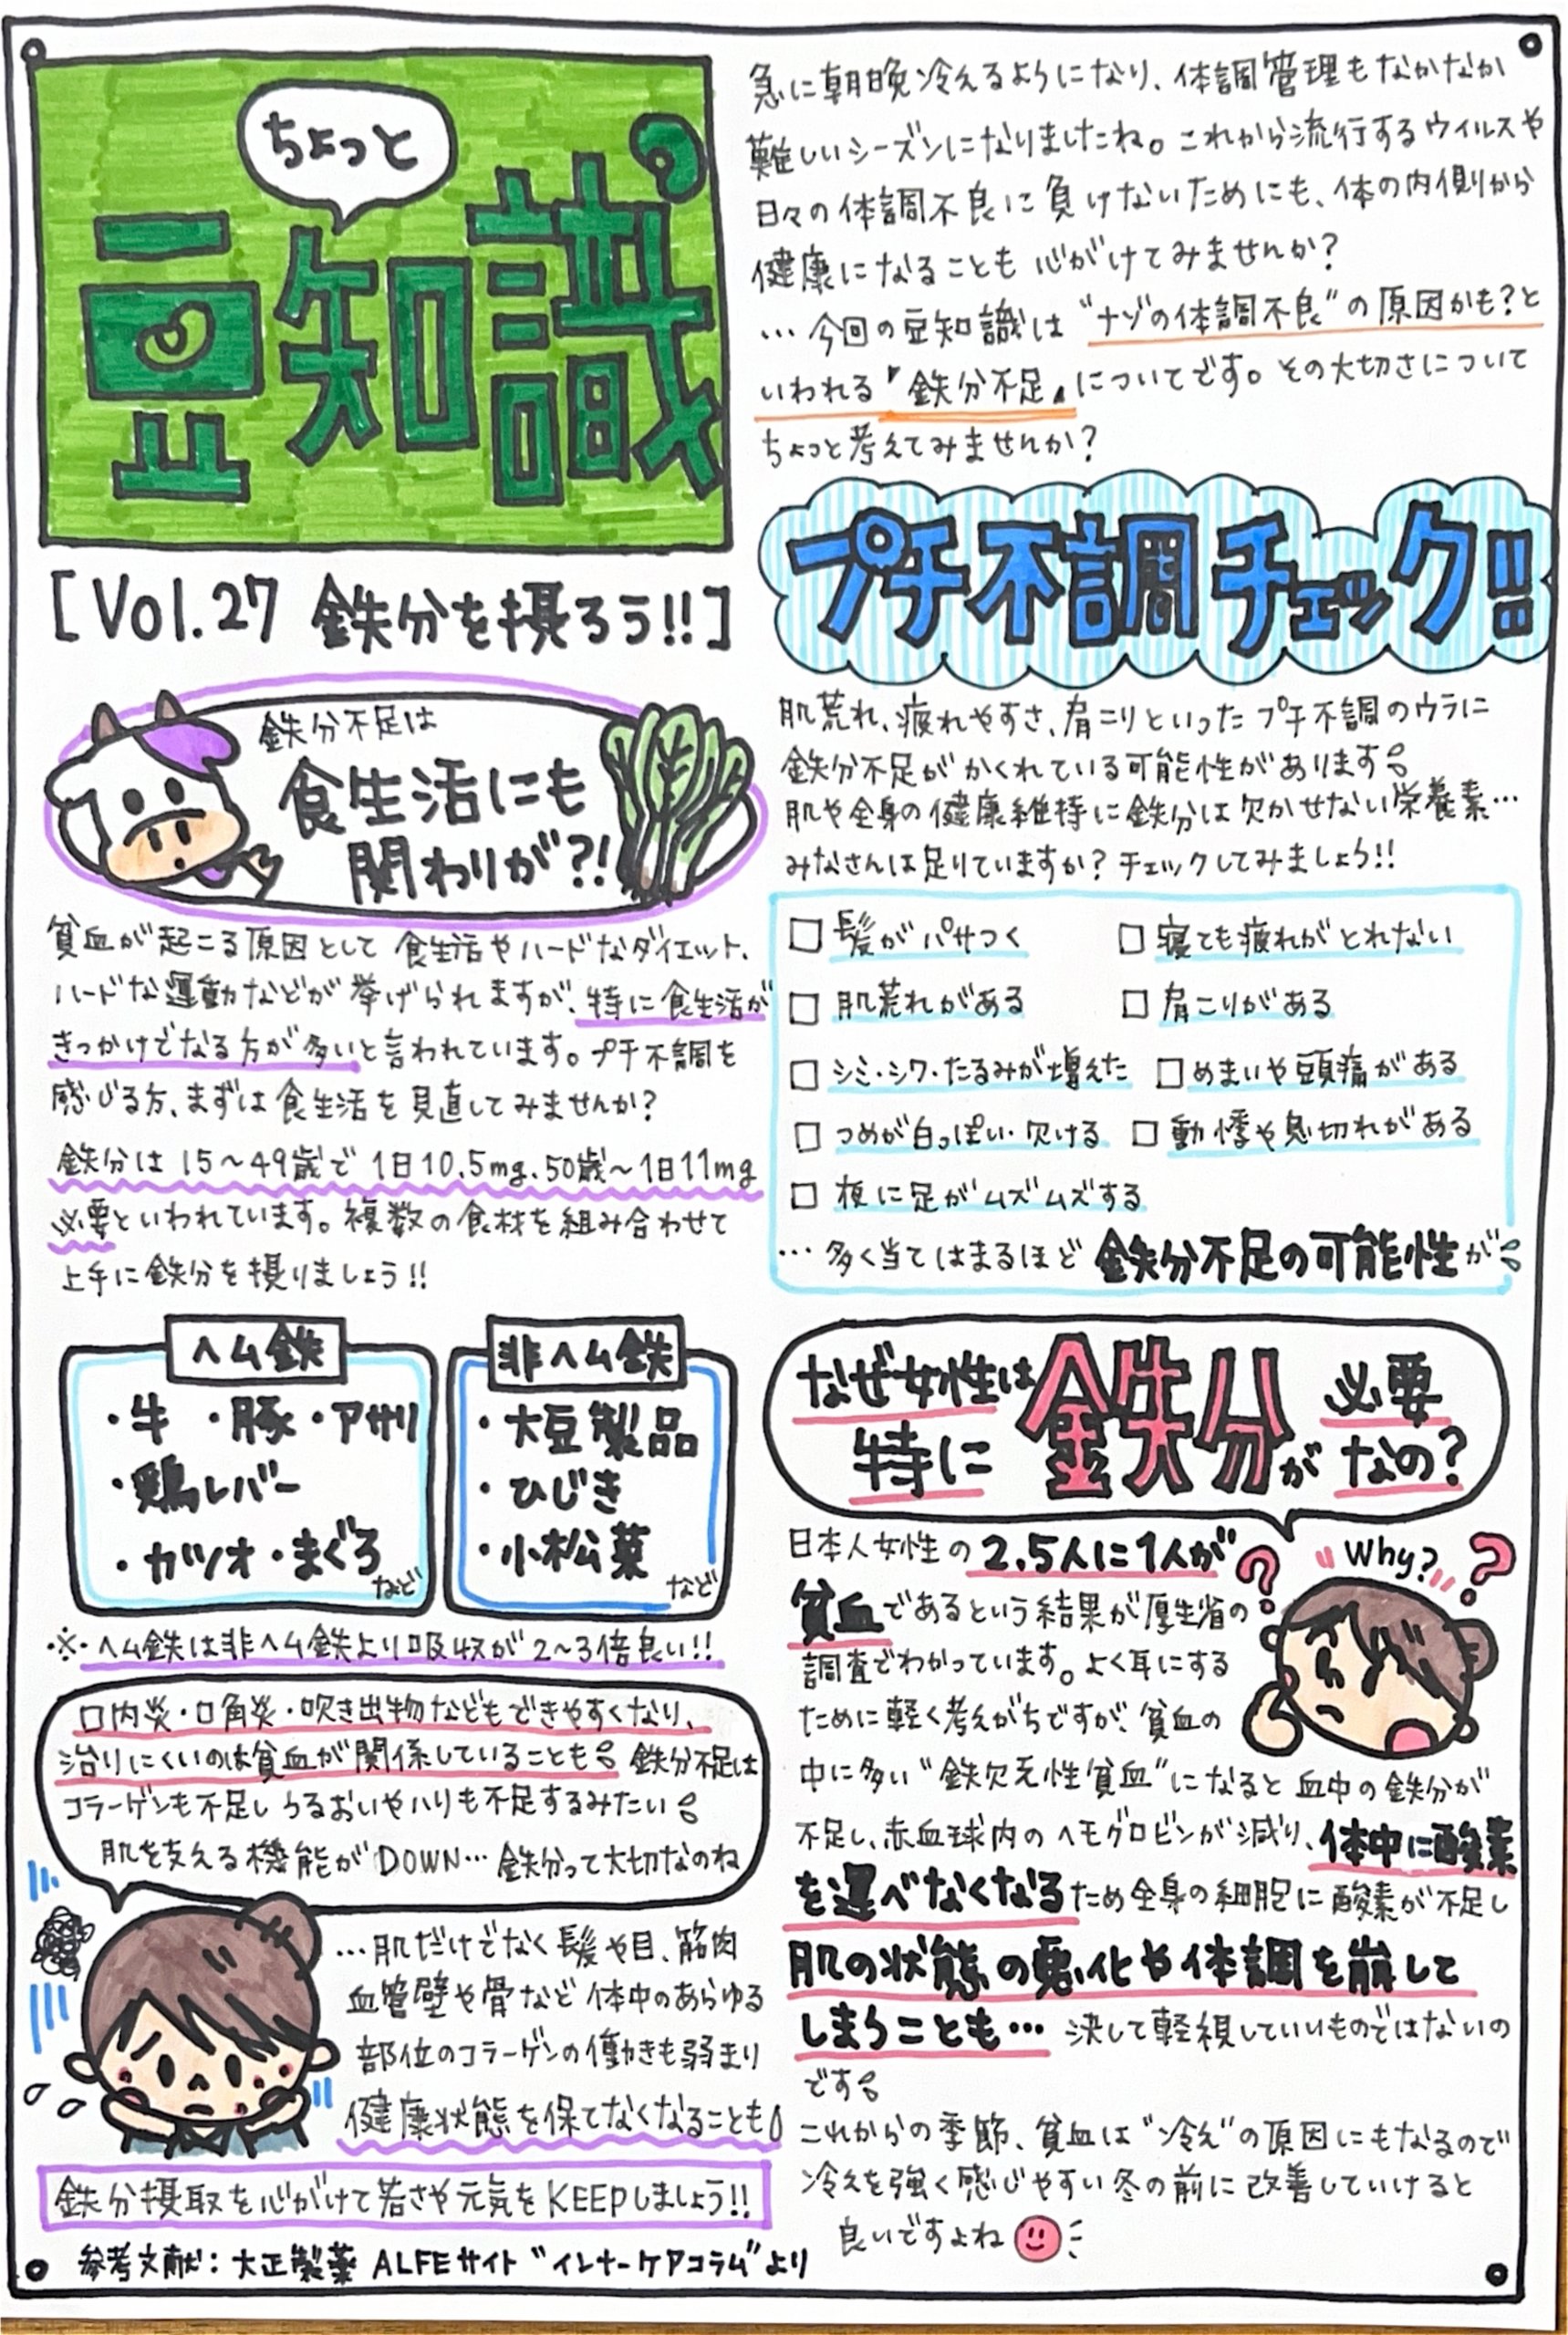 ちょっと
豆知識
[Vol.27 鉄分を摂ろう!!]
急に朝晩冷えるようになり、体調管理もなかなか
難しいシーズンになりましたね。これから流行するウイルスや
日々の体調不良に負けないためにも、体の内側から
健康になることも心がけてみませんか?
…今回の豆知識は“ナゾの体調不良”の原因かも?と
いわれる『鉄分不足』についてです。その大切さについて
ちょっと考えてみませんか?
プチ不調チェック!!
肌荒れ、疲れやすさ、肩こりといったプチ不調のウラに
鉄分不足がかくれている可能性があります。
肌や全身の健康維持に鉄分は欠かせない栄養素…
みなさんは足りていますか?チェックしてみましょう!!
□ 髪がパサつく □ 寝ても疲れがとれない
□ 肌荒れがある □ 肩こりがある
□ シミ・シワ・たるみが増えた □ めまいや頭痛がある
□ つめが白っぽい・欠ける □ 動悸や息切れがある
□ 夜に足がムズムズする
…多く当てはまるほど 鉄分不足の可能性が
鉄分不足は
食生活にも
関わりが?!
貧血が起こる原因として食生活やハードなダイエット、
ハードな運動などが挙げられますが、特に食生活が
きっかけでなる方が多いと言われています。プチ不調を
感じる方、まずは食生活を見直してみませんか?
鉄分は15~49歳で1日10.5mg、50歳~1日11mg
必要といわれています。複数の食材を組み合わせて
上手に鉄分を摂りましょう!!
ヘム鉄
・牛 ・豚・アサリ
・鶏レバー
・カツオ・まぐろ
など
非ヘム鉄
・大豆製品
・ひじき
・小松菜
など
※・ヘム鉄は非ヘム鉄より吸収が2~3倍良い!!
口内炎・口角炎・吹き出物などもできやすくなり、
治りにくいのは貧血が関係していることも。鉄分不足は
コラーゲンも不足しうるおいやハリも不足するみたい。
肌を支える機能がDOWN…鉄分って大切なのね
…肌だけでなく髪や目、筋肉
血管壁や骨など体中のあらゆる
部位のコラーゲンの働きも弱まり
健康状態を保てなくなることも
鉄分摂取を心がけて若さや元気をKEEPしましょう!!
参考文献:大正製薬 ALFEサイト“インナーケアコラム”より
なぜ女性は
特に
鉄分が
必要
なの?
Why?
日本人女性の2.5人に1人が
貧血であるという結果が厚生省の
調査でわかっています。よく耳にする
ために軽く考えがちですが、貧血の
中に多い“鉄欠乏性貧血”になると血中の鉄分が
不足し、赤血球内のヘモグロビンが減り、体中に酸素
を運べなくなるため全身の細胞に酸素が不足し
肌の状態の悪化や体調を崩して
しまうことも… 決して軽視していいものではないの
です。
これからの季節、貧血は“冷え”の原因にもなるので
冷えを強く感じやすい冬の前に改善していけると
良いですよね